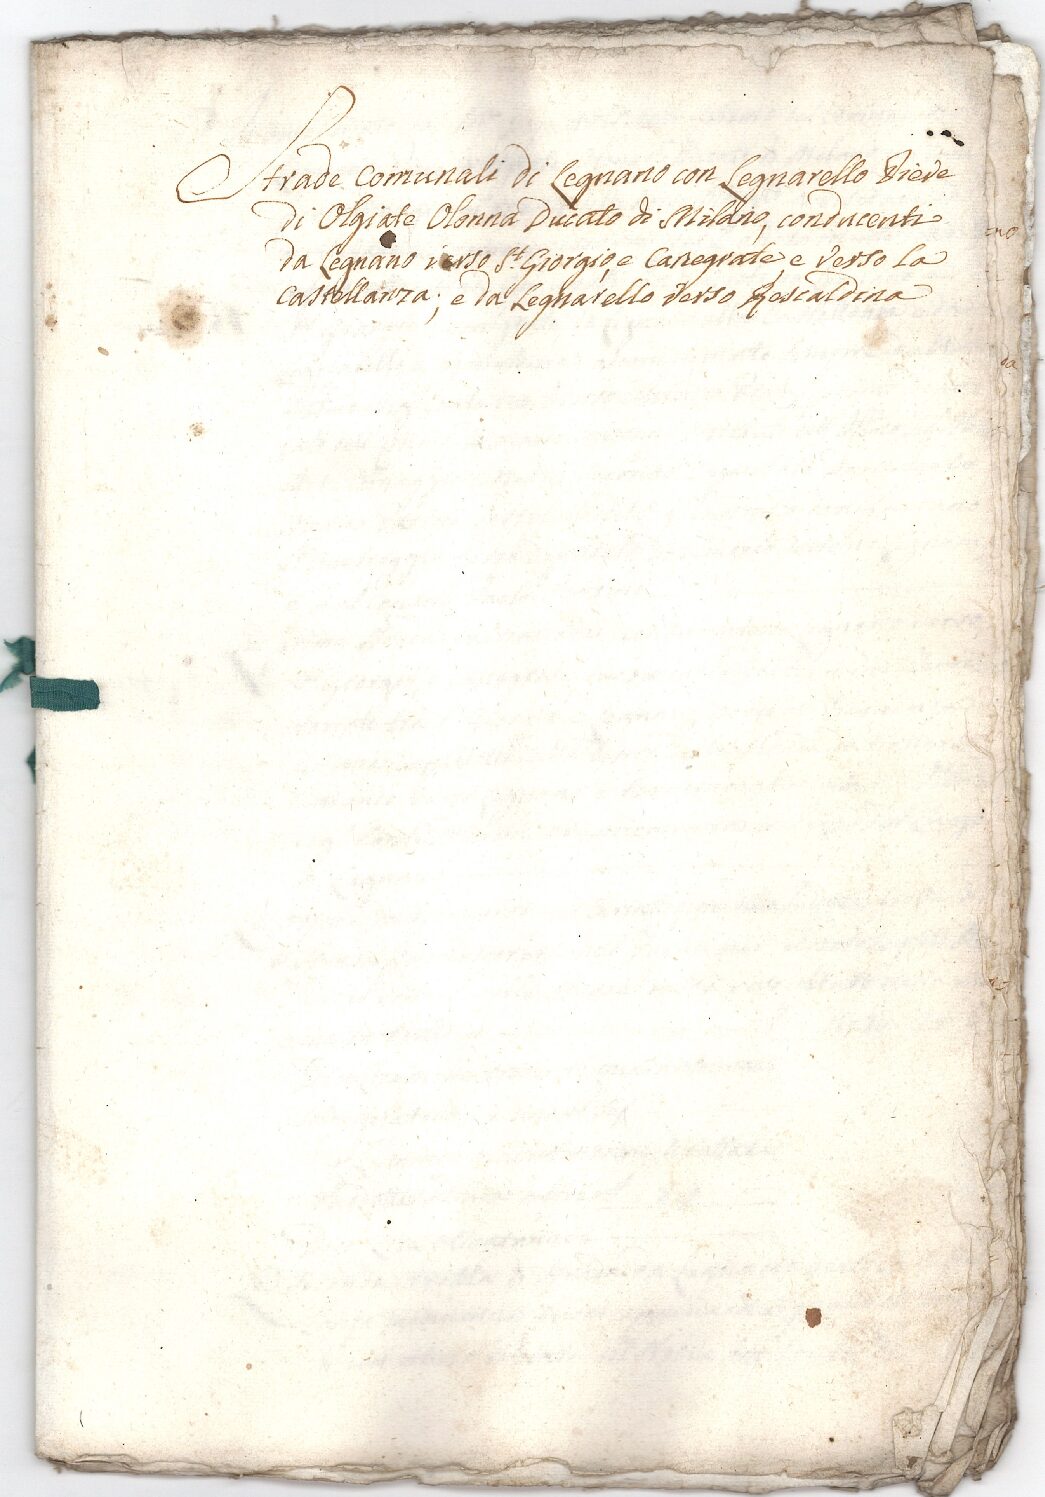 Strade Comunali di Legnano con Legnarello Pieve
di Olgiate Olonna Ducato di Milano, conducenti
da Legnano verso St. Giorgio, e Canegrate, e verso la
Castellanza; e da Legnarello verso Rescaldina